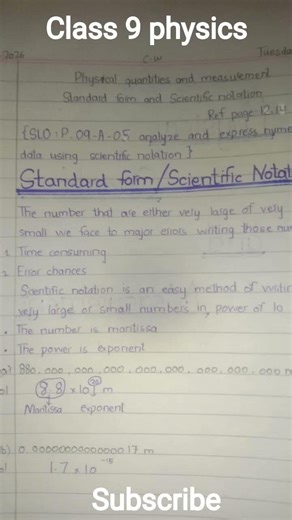 Class 9 physics
-2026 C.W Tuesda
Physical quantities and measurement
Standard form and Scientific notation
Ref page 12.14
{SLO: P-09-A-05 analyze and express nyme
data using scientific notation}
Standard form/Scientific Notat
The number that are either very large of very
small we face to major errors writing those nu
1. Time consuming
2. Error chances
Scientific notation is an easy method of writin
very large or small numbers in power of 10
• The number is mantissa
• The power is exponent
a) 880,000,000,000,000,000,000,000,000
8.8 × 10 m
Mantissa exponent
b) 17 m
1.7 × 10
Subscribe